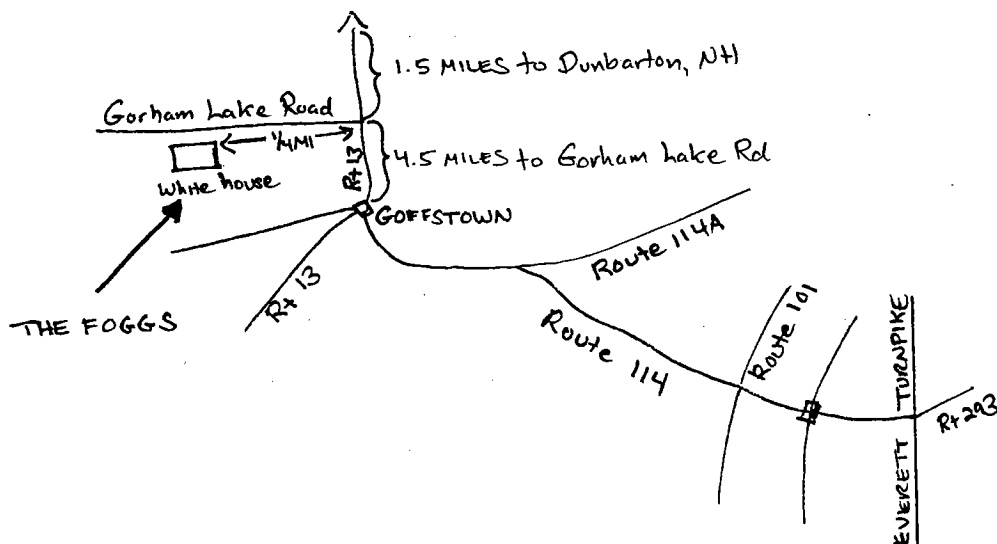 1.5 MILES to Dunbarton, NH
Gorham Lake Road
1/4 MI
Rt 13
4.5 MILES to Gorham Lake Rd
White house
GOFFSTOWN
Route 114A
Rt 13
THE FOGGS
Route 114
Route 101
EVERETT TURNPIKE
Rt 293